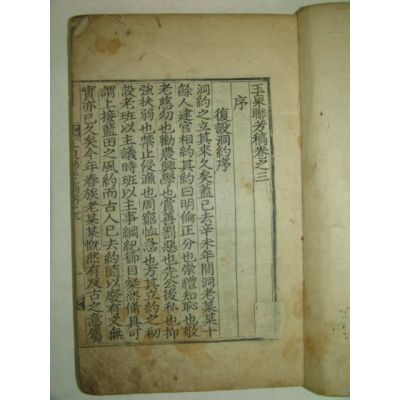 玉泉聯芳稿卷之三
序
復設洞約序
洞約之立其來久矣蓋已去辛未年間洞老某某十
餘人建官相約其約曰明倫正分也崇禮知恥也敬
老慈幼也勸農興學也賞善罰惡也先公後私也抑
強扶弱也禁止侵漁也周窮恤急也方其立約之初
設老班以主議時班以主事綱紀節目燦然備具可
謂上接藍田之風約而古人已去約隨以廢有文無
實亦已久矣今年春族老某某慨然有反古之意屬